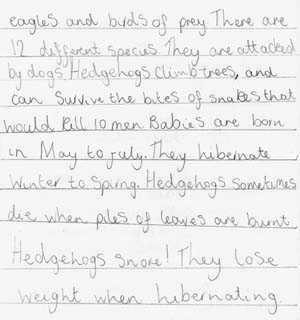 eagles and birds of prey There are
12 different specus They are attacked
by dogs. Hedgehogs climb trees, and
can survive the bites of snakes that
would kill 10 men Babies are born
in May to july. They hibernate
winter to Spirng. Hedgehogs sometimes
die when piles of leaves are burnt
Hedgehogs snore! They lose
weight when hibernating.